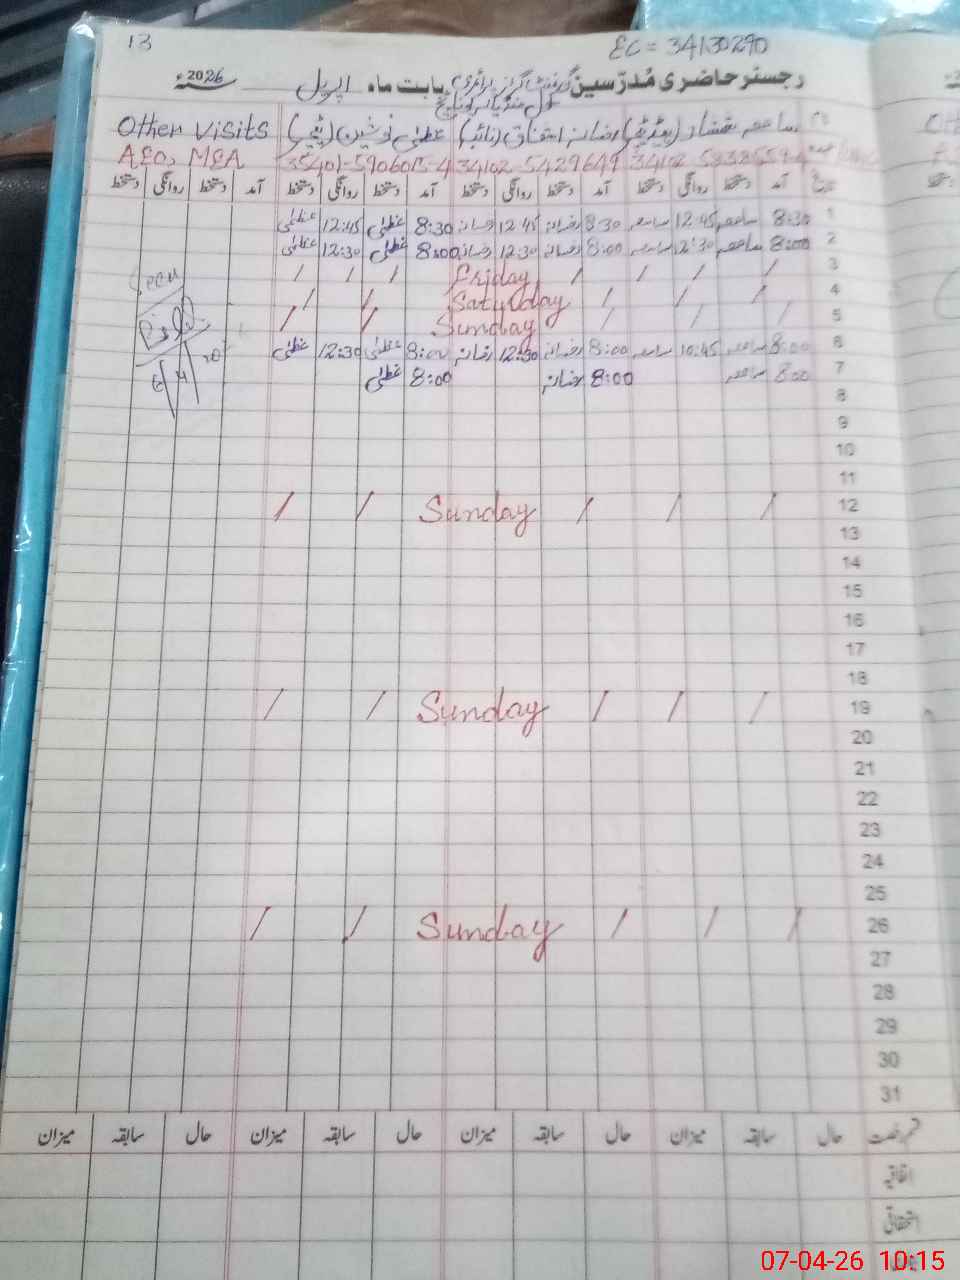 13
EC = 34130290
رجسٹر حاضری مُدرّسین گورنمنٹ گرلز پرائمری بابت ماہ اپریل 2026ء
سکول
(ہیڈ ٹیچر) رضانہ اشفاق (نائب) عظمیٰ نوشین (ٹیچر) Other Visits
34102 5429649 35401-5906015-4 AEO, MEA
تاریخ آمد دستخط روانگی دستخط آمد دستخط روانگی دستخط آمد دستخط روانگی دستخط آمد دستخط روانگی دستخط
1 8:30 12:45 8:30 رضانہ 12:45 رضانہ 8:30 عظمیٰ 12:45 عظمیٰ
2 8:00 12:30 8:00 رضانہ 12:30 رضانہ 8:00 عظمیٰ 12:30 عظمیٰ
3 / / / / Friday / / /
4 / / / Saturday / /
5 / / / Sunday / /
6 8:00 10:45 8:00 رضانہ 12:30 رضانہ 8:00 عظمیٰ 12:30 عظمیٰ
7 8:00 8:00 رضانہ 8:00 عظمیٰ
8
9
10
11
12 / / / Sunday / /
13
14
15
16
17
18
19 / / / Sunday / /
20
21
22
23
24
25
26 / / / Sunday / /
27
28
29
30
31
قسم رخصت حال سابقہ میزان حال سابقہ میزان حال سابقہ میزان حال سابقہ میزان
اتفاقیہ
استحقاقی
07-04-26 10:15